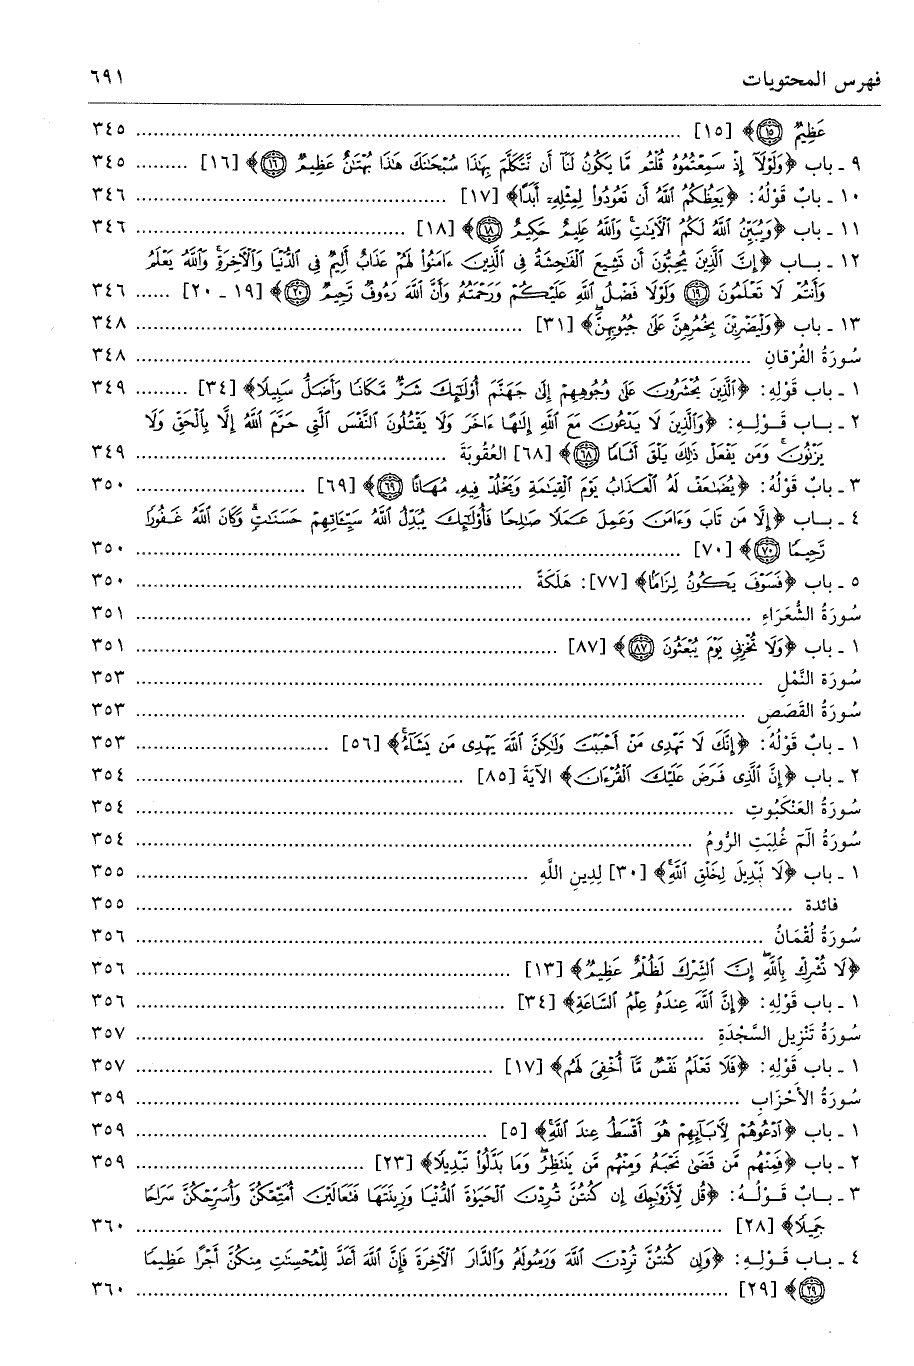 فهرس المحتويات ٦٩١
عَظِيمٌ ۝١٥﴾ [١٥] ........ ٣٤٥
٩ ـ باب ﴿وَلَوْلَآ إِذْ سَمِعْتُمُوهُ قُلْتُم مَّا يَكُونُ لَنَآ أَن نَّتَكَلَّمَ بِهَٰذَا سُبْحَٰنَكَ هَٰذَا بُهْتَٰنٌ عَظِيمٌ ۝١٦﴾ [١٦] ........ ٣٤٥
١٠ ـ بابٌ قَوْلُهُ: ﴿يَعِظُكُمُ ٱللَّهُ أَن تَعُودُوا۟ لِمِثْلِهِۦٓ أَبَدًا﴾ [١٧] ........ ٣٤٦
١١ ـ باب ﴿وَيُبَيِّنُ ٱللَّهُ لَكُمُ ٱلْءَايَٰتِ ۚ وَٱللَّهُ عَلِيمٌ حَكِيمٌ ۝١٨﴾ [١٨] ........ ٣٤٦
١٢ ـ بـاب ﴿إِنَّ ٱلَّذِينَ يُحِبُّونَ أَن تَشِيعَ ٱلْفَٰحِشَةُ فِى ٱلَّذِينَ ءَامَنُوا۟ لَهُمْ عَذَابٌ أَلِيمٌ فِى ٱلدُّنْيَا وَٱلْءَاخِرَةِ ۚ وَٱللَّهُ يَعْلَمُ
وَأَنتُمْ لَا تَعْلَمُونَ ۝١٩ وَلَوْلَا فَضْلُ ٱللَّهِ عَلَيْكُمْ وَرَحْمَتُهُۥ وَأَنَّ ٱللَّهَ رَءُوفٌ رَّحِيمٌ ۝٢٠﴾ [١٩ ـ ٢٠] ...... ٣٤٦
١٣ ـ باب ﴿وَلْيَضْرِبْنَ بِخُمُرِهِنَّ عَلَىٰ جُيُوبِهِنَّ﴾ [٣١] ........ ٣٤٨
سُورَةُ الفُرْقانِ ........ ٣٤٨
١ ـ باب قَوْلِهِ: ﴿ٱلَّذِينَ يُحْشَرُونَ عَلَىٰ وُجُوهِهِمْ إِلَىٰ جَهَنَّمَ أُو۟لَٰٓئِكَ شَرٌّ مَّكَانًا وَأَضَلُّ سَبِيلًا﴾ [٣٤] ........ ٣٤٩
٢ ـ بـاب قَـوْلِـهِ: ﴿وَٱلَّذِينَ لَا يَدْعُونَ مَعَ ٱللَّهِ إِلَٰهًا ءَاخَرَ وَلَا يَقْتُلُونَ ٱلنَّفْسَ ٱلَّتِى حَرَّمَ ٱللَّهُ إِلَّا بِٱلْحَقِّ وَلَا
يَزْنُونَ ۚ وَمَن يَفْعَلْ ذَٰلِكَ يَلْقَ أَثَامًا ۝٦٨﴾ [٦٨] العُقُوبَةَ ........ ٣٤٩
٣ ـ بابٌ قَوْلُهُ: ﴿يُضَٰعَفْ لَهُ ٱلْعَذَابُ يَوْمَ ٱلْقِيَٰمَةِ وَيَخْلُدْ فِيهِۦ مُهَانًا ۝٦٩﴾ [٦٩] ........ ٣٥٠
٤ ـ بـاب ﴿إِلَّا مَن تَابَ وَءَامَنَ وَعَمِلَ عَمَلًا صَٰلِحًا فَأُو۟لَٰٓئِكَ يُبَدِّلُ ٱللَّهُ سَيِّـَٔاتِهِمْ حَسَنَٰتٍ ۗ وَكَانَ ٱللَّهُ غَفُورًا
رَّحِيمًا ۝٧٠﴾ [٧٠] ........ ٣٥٠
٥ ـ باب ﴿فَسَوْفَ يَكُونُ لِزَامًا﴾ [٧٧]: هَلَكَةً ........ ٣٥٠
سُورَةُ الشُّعَرَاءِ ........ ٣٥١
١ ـ باب ﴿وَلَا تُخْزِنِى يَوْمَ يُبْعَثُونَ ۝٨٧﴾ [٨٧] ........ ٣٥١
سُورَة النَّمْلِ ........ ٣٥٣
سُورَةُ القَصَصِ ........ ٣٥٣
١ ـ بابٌ قَوْلُهُ: ﴿إِنَّكَ لَا تَهْدِى مَنْ أَحْبَبْتَ وَلَٰكِنَّ ٱللَّهَ يَهْدِى مَن يَشَآءُ﴾ [٥٦] ........ ٣٥٣
٢ ـ باب ﴿إِنَّ ٱلَّذِى فَرَضَ عَلَيْكَ ٱلْقُرْءَانَ﴾ الآيَةَ [٨٥] ........ ٣٥٤
سُورَةُ العَنْكَبُوتِ ........ ٣٥٤
سُورَةُ الَمَ غُلِبَتِ الرُّومُ ........ ٣٥٤
١ ـ باب ﴿لَا تَبْدِيلَ لِخَلْقِ ٱللَّهِ﴾ [٣٠] لِدِينِ اللَّهِ ........ ٣٥٥
فائدة ........ ٣٥٥
سُورَةُ لُقْمَانُ ........ ٣٥٦
﴿لَا تُشْرِكْ بِٱللَّهِ ۖ إِنَّ ٱلشِّرْكَ لَظُلْمٌ عَظِيمٌ﴾ [١٣] ........ ٣٥٦
١ ـ باب قَوْلِهِ: ﴿إِنَّ ٱللَّهَ عِندَهُۥ عِلْمُ ٱلسَّاعَةِ﴾ [٣٤] ........ ٣٥٦
سُورَةُ تَنْزِيل السَّجْدَةِ ........ ٣٥٧
١ ـ باب قَوْلِهِ: ﴿فَلَا تَعْلَمُ نَفْسٌ مَّآ أُخْفِىَ لَهُم﴾ [١٧] ........ ٣٥٧
سُورَةُ الأَحْزَابِ ........ ٣٥٩
١ ـ باب ﴿ٱدْعُوهُمْ لِءَابَآئِهِمْ هُوَ أَقْسَطُ عِندَ ٱللَّهِ﴾ [٥] ........ ٣٥٩
٢ ـ باب ﴿فَمِنْهُم مَّن قَضَىٰ نَحْبَهُۥ وَمِنْهُم مَّن يَنتَظِرُ ۖ وَمَا بَدَّلُوا۟ تَبْدِيلًا﴾ [٢٣] ........ ٣٥٩
٣ ـ بـابٌ قَـوْلُـهُ: ﴿قُل لِّأَزْوَٰجِكَ إِن كُنتُنَّ تُرِدْنَ ٱلْحَيَوٰةَ ٱلدُّنْيَا وَزِينَتَهَا فَتَعَالَيْنَ أُمَتِّعْكُنَّ وَأُسَرِّحْكُنَّ سَرَاحًا
جَمِيلًا﴾ [٢٨] ........ ٣٦٠
٤ ـ بـاب قَـوْلِـهِ: ﴿وَإِن كُنتُنَّ تُرِدْنَ ٱللَّهَ وَرَسُولَهُۥ وَٱلدَّارَ ٱلْءَاخِرَةَ فَإِنَّ ٱللَّهَ أَعَدَّ لِلْمُحْسِنَٰتِ مِنكُنَّ أَجْرًا عَظِيمًا
۝٢٩﴾ [٢٩] ........ ٣٦٠